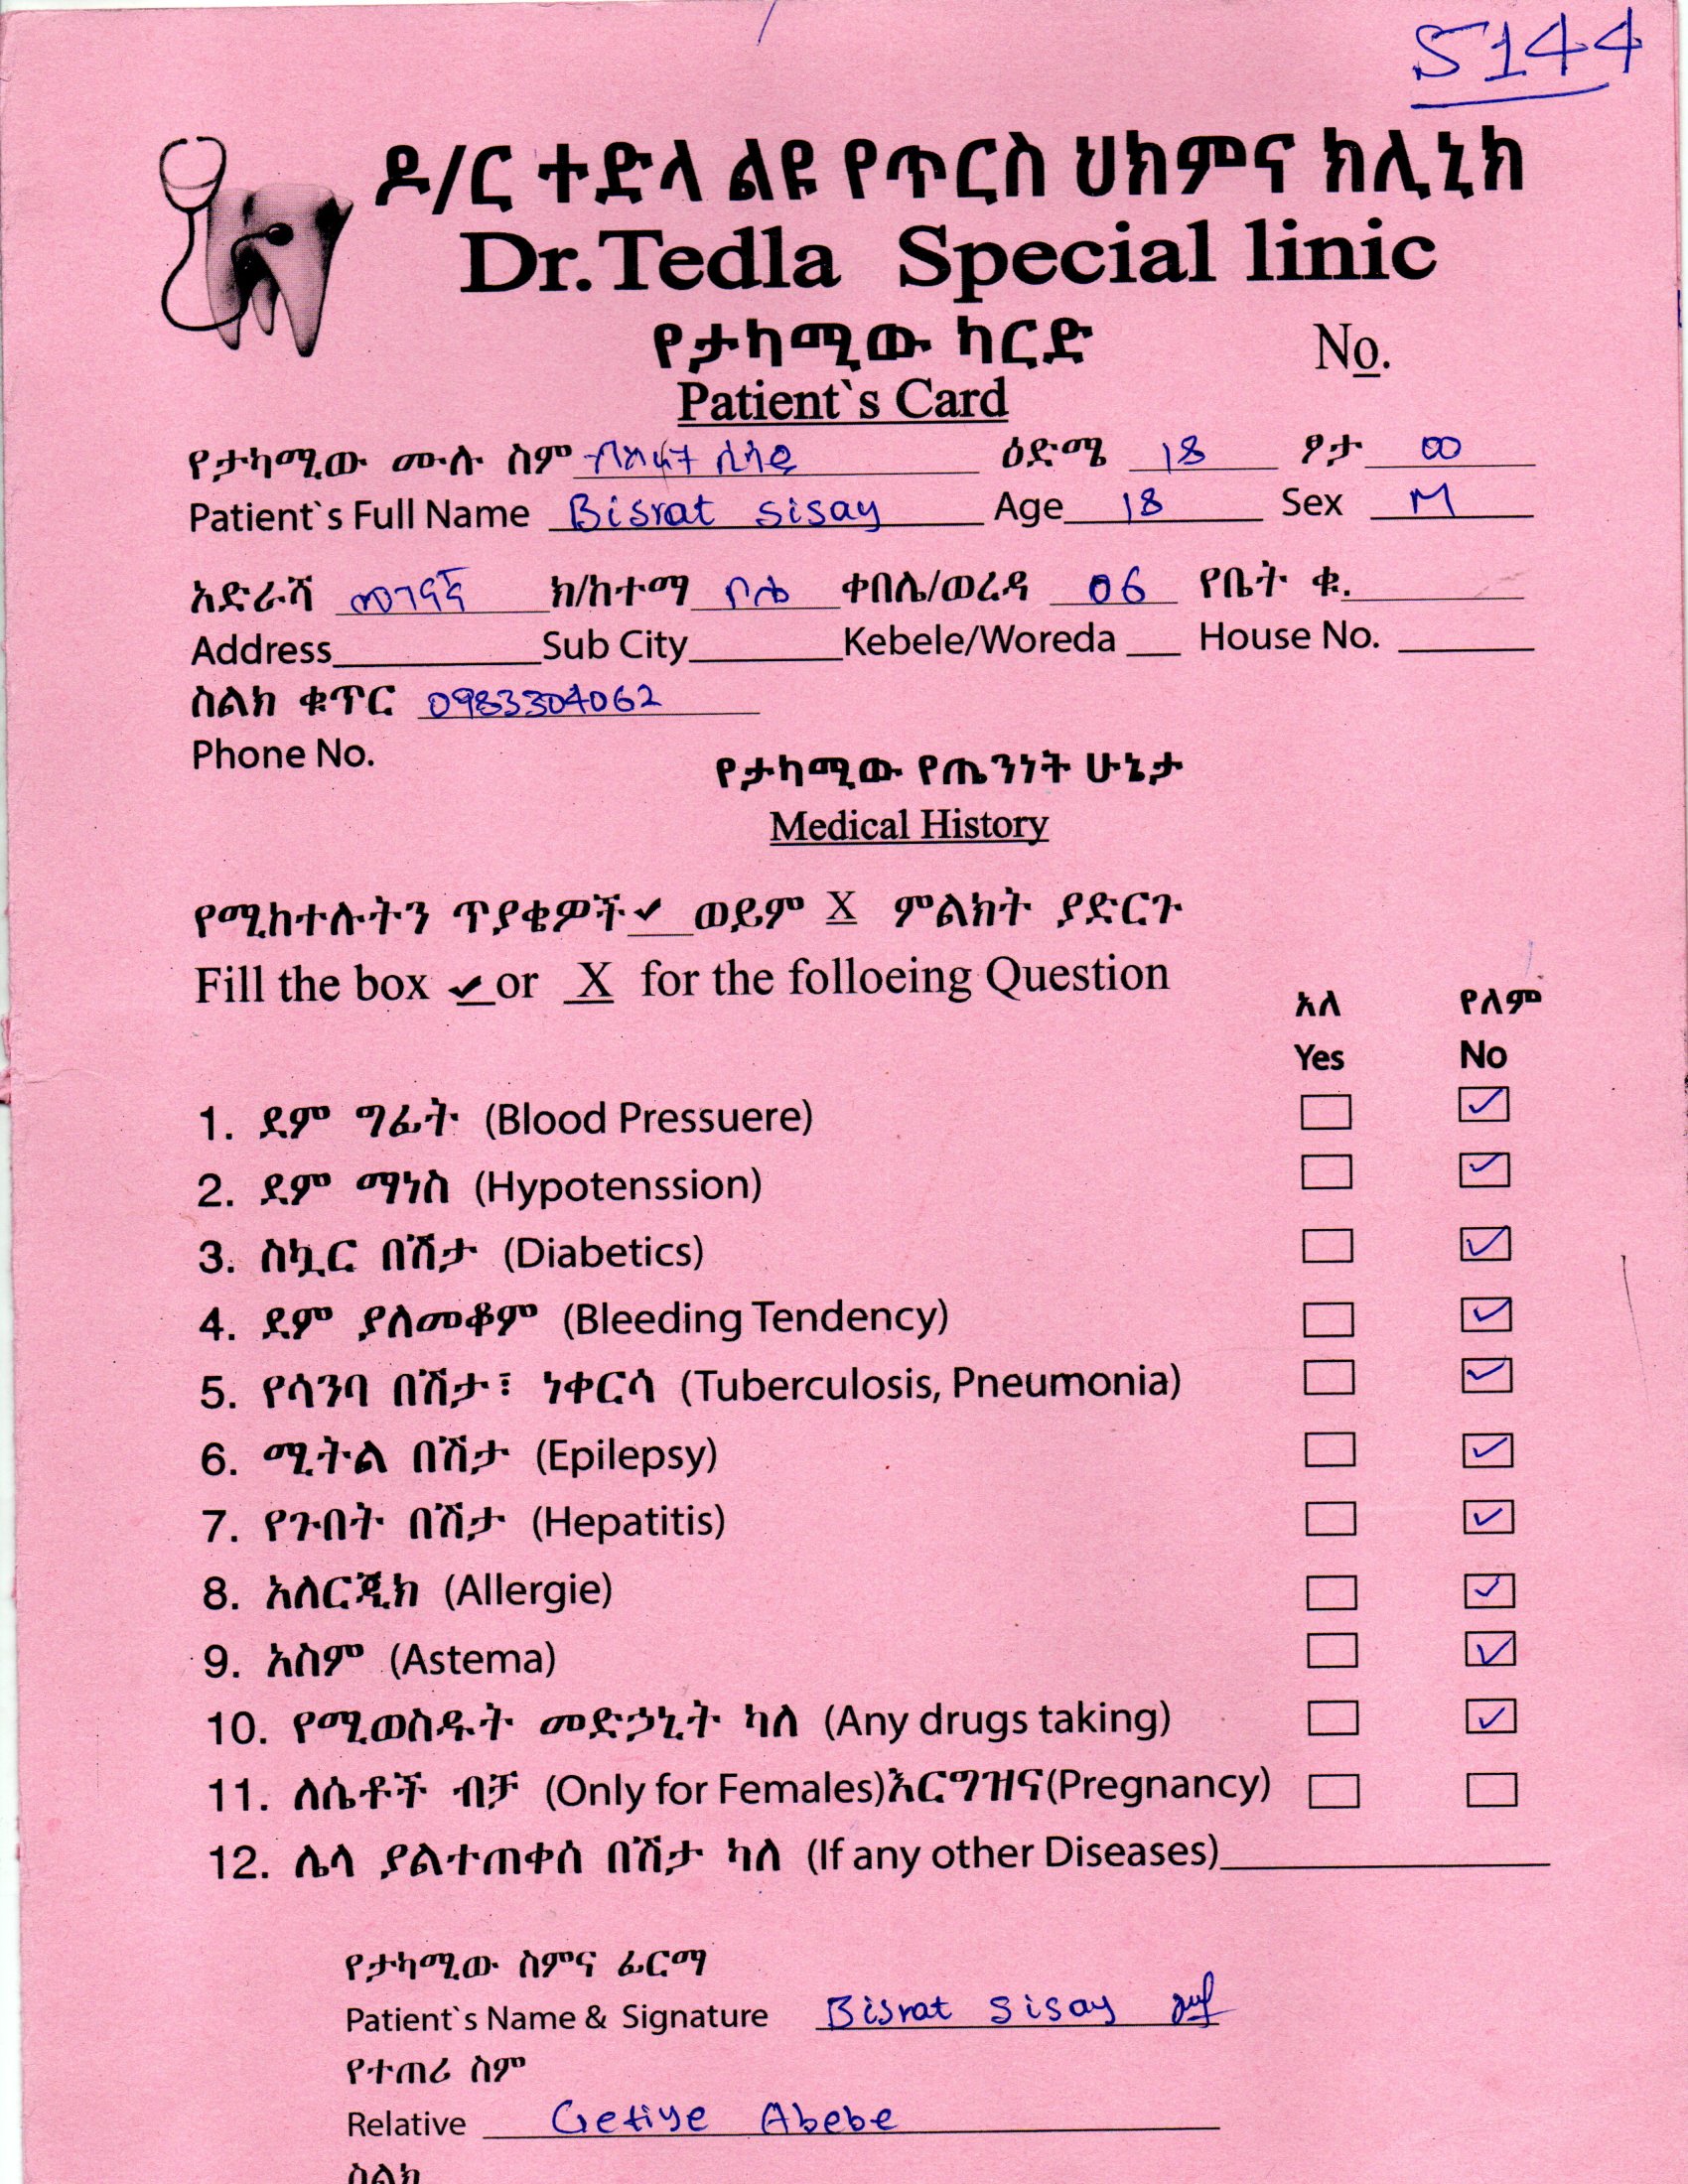 5144
ዶ/ር ተድላ ልዩ የጥርስ ህክምና ክሊኒክ
Dr.Tedla Special linic
የታካሚው ካርድ No.
Patient`s Card
የታካሚው ሙሉ ስም ብስራት ሲሳይ ዕድሜ 18 ፆታ ወ
Patient`s Full Name Bisrat sisay Age 18 Sex M
አድራሻ መገናኛ ክ/ከተማ ቦሌ ቀበሌ/ወረዳ 06 የቤት ቁ.
Address Sub City Kebele/Woreda House No.
ስልክ ቁጥር 0983304062
Phone No.
የታካሚው የጤንነት ሁኔታ
Medical History
የሚከተሉትን ጥያቄዎች ✓ ወይም X ምልክት ያድርጉ
Fill the box ✓ or X for the folloeing Question
አለ የለም
Yes No
1. ደም ግፊት (Blood Pressuere) ✓
2. ደም ማነስ (Hypotenssion) ✓
3. ስኳር በሽታ (Diabetics) ✓
4. ደም ያለመቆም (Bleeding Tendency) ✓
5. የሳንባ በሽታ፣ ነቀርሳ (Tuberculosis, Pneumonia) ✓
6. ሚትል በሽታ (Epilepsy) ✓
7. የጉበት በሽታ (Hepatitis) ✓
8. አለርጂክ (Allergie) ✓
9. አስም (Astema) ✓
10. የሚወስዱት መድኃኒት ካለ (Any drugs taking) ✓
11. ለሴቶች ብቻ (Only for Females)እርግዝና(Pregnancy)
12. ሌላ ያልተጠቀሰ በሽታ ካለ (If any other Diseases)
የታካሚው ስምና ፊርማ
Patient`s Name & Signature Bisrat sisay
የተጠሪ ስም
Relative Getiye Abebe
ስልክ